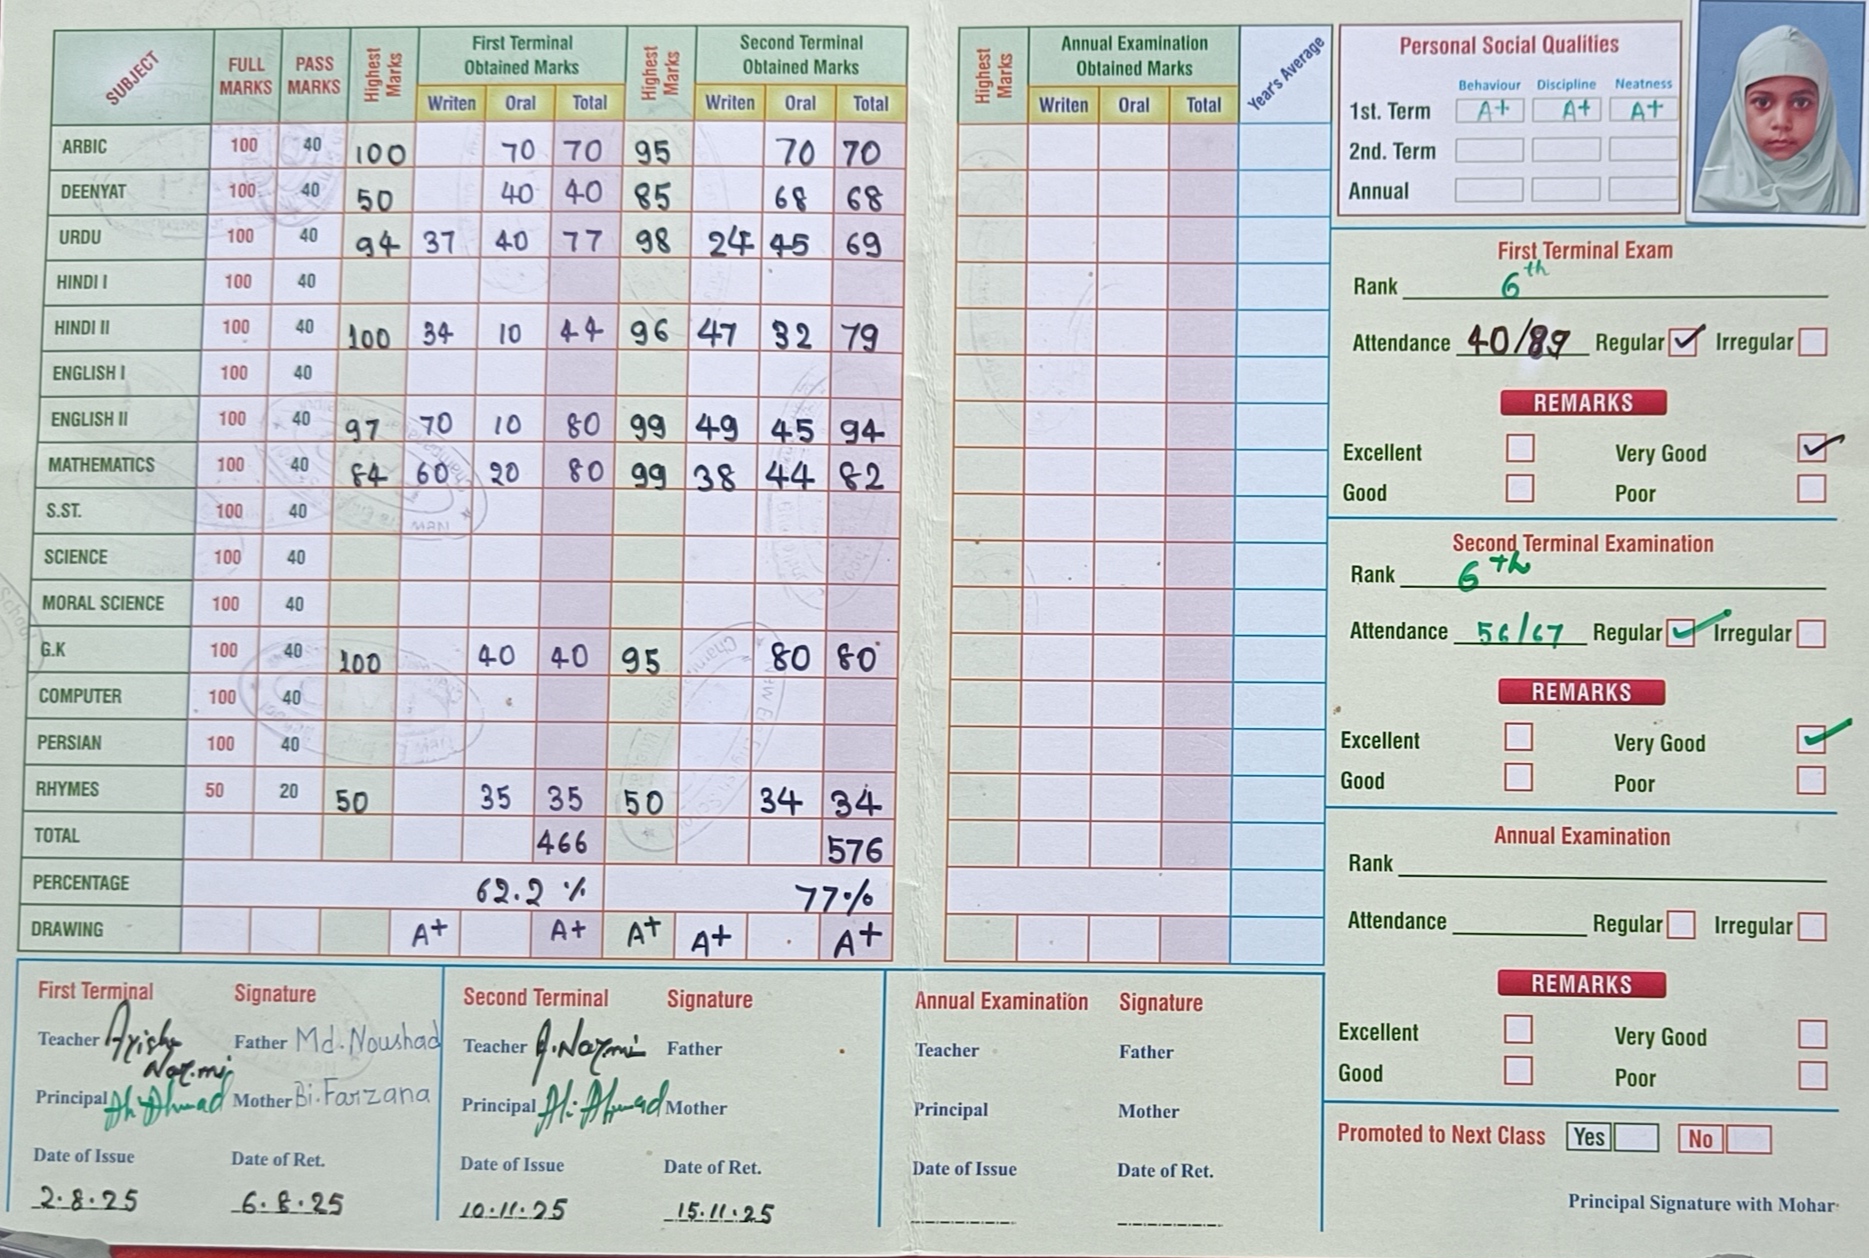 SUBJECT FULL MARKS PASS MARKS Highest Marks First Terminal Obtained Marks Highest Marks Second Terminal Obtained Marks
Writen Oral Total Writen Oral Total
ARBIC 100 40 100 70 70 95 70 70
DEENYAT 100 40 50 40 40 85 68 68
URDU 100 40 94 37 40 77 98 24 45 69
HINDI I 100 40
HINDI II 100 40 100 34 10 44 96 47 32 79
ENGLISH I 100 40
ENGLISH II 100 40 97 70 10 80 99 49 45 94
MATHEMATICS 100 40 84 60 20 80 99 38 44 82
S.ST. 100 40
SCIENCE 100 40
MORAL SCIENCE 100 40
G.K 100 40 100 40 40 95 80 80
COMPUTER 100 40
PERSIAN 100 40
RHYMES 50 20 50 35 35 50 34 34
TOTAL 466 576
PERCENTAGE 62.2 % 77%
DRAWING A+ A+ A+ A+ A+
First Terminal Signature
Teacher Ayisha Nazmi Father Md. Noushad
Principal Ahmad Mother Bi. Farzana
Date of Issue Date of Ret.
2.8.25 6.8.25
Second Terminal Signature
Teacher A. Nazmi Father
Principal Ahmad Mother
Date of Issue Date of Ret.
10.11.25 15.11.25
Highest Marks Annual Examination Obtained Marks Year's Average
Writen Oral Total
Annual Examination Signature
Teacher Father
Principal Mother
Date of Issue Date of Ret.
Personal Social Qualities
Behaviour Discipline Neatness
1st. Term A+ A+ A+
2nd. Term
Annual
First Terminal Exam
Rank 6th
Attendance 40/89 Regular Irregular
REMARKS
Excellent Very Good
Good Poor
Second Terminal Examination
Rank 6th
Attendance 56/67 Regular Irregular
REMARKS
Excellent Very Good
Good Poor
Annual Examination
Rank
Attendance Regular Irregular
REMARKS
Excellent Very Good
Good Poor
Promoted to Next Class Yes No
Principal Signature with Mohar